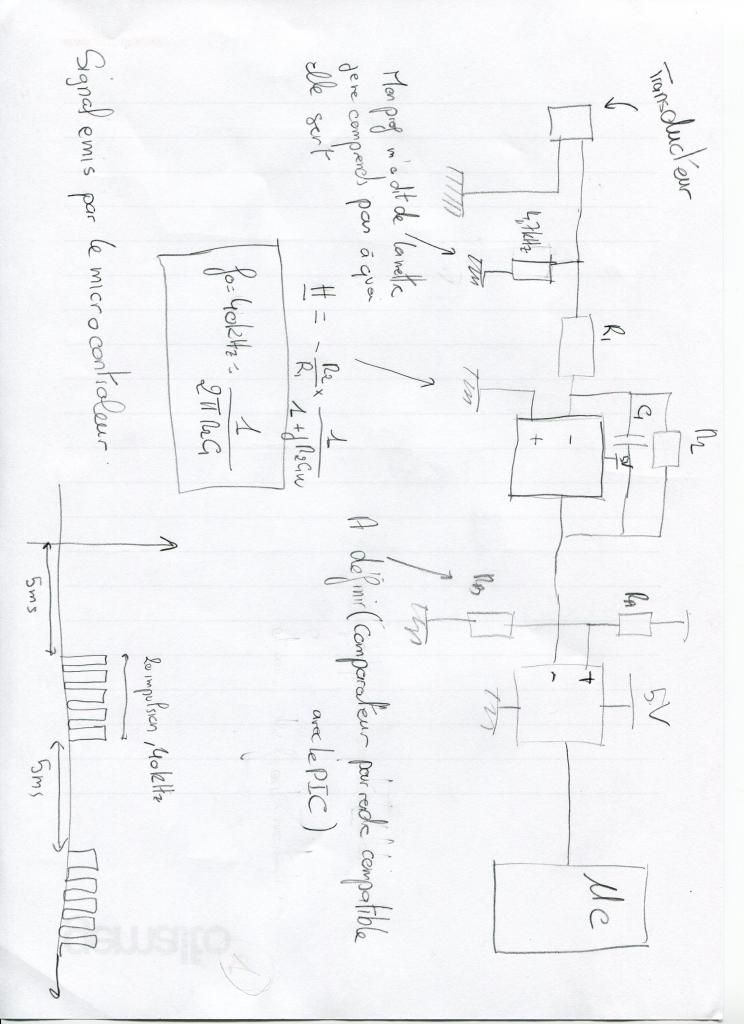 Transducteur
4,7kHz
R1
R2
C1
RA
RB
5V
+
-
-
+
µC
Mon prof m'a dit de la mettre
je ne comprends pas à quoi
elle sert
H = - R2/R1 x 1/(1+jR2C1w)
f0 = 40kHz = 1/(2πR2C1)
A définir (Comparateur pour rendre compatible
avec le PIC)
Signal emis par le microcontroleur
20 impulsion, 40kHz
5ms
5ms
gemalto